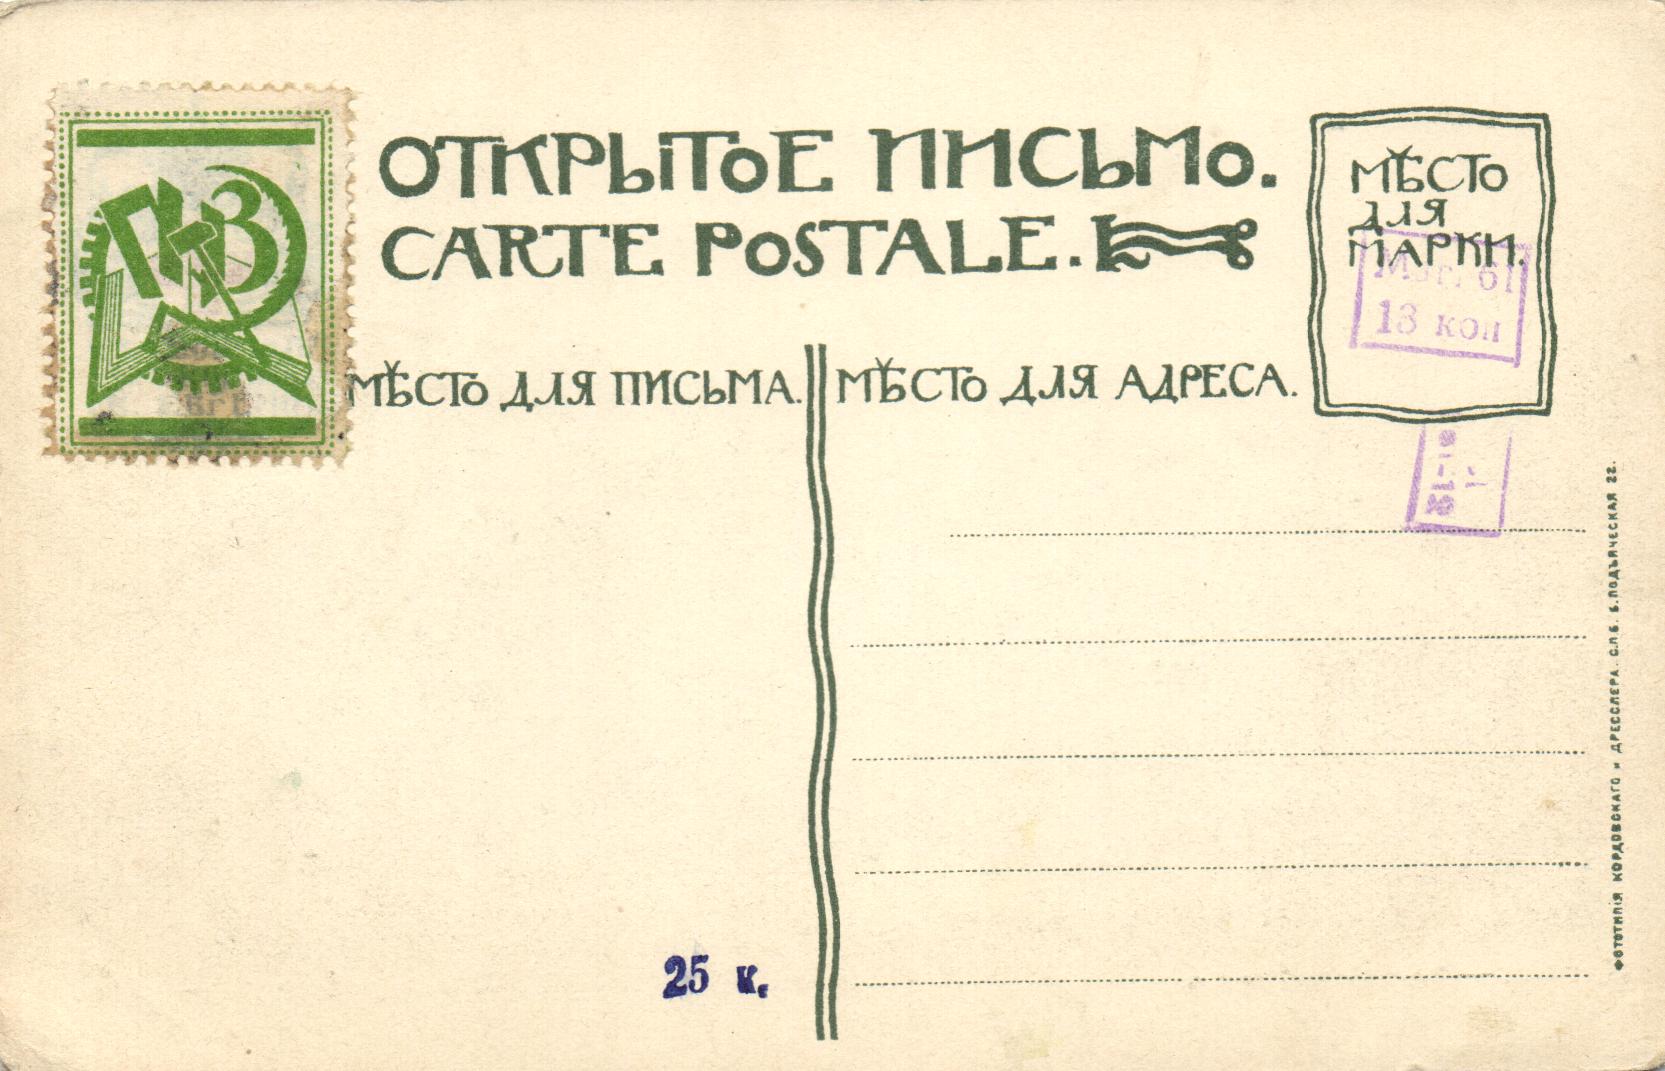 ПКЗ
ОТКРЫТОЕ ПИСЬМО.
CARTE POSTALE.
МѢСТО
ДЛЯ
МАРКИ.
Маг. 61
13 коп
МѢСТО ДЛЯ ПИСЬМА.
МѢСТО ДЛЯ АДРЕСА.
25 к.
ФОТОТИПІЯ КОРДОВСКАГО и ДРЕССЛЕРА. С.П.Б. Б.ПОДЪЯЧЕСКАЯ 22.